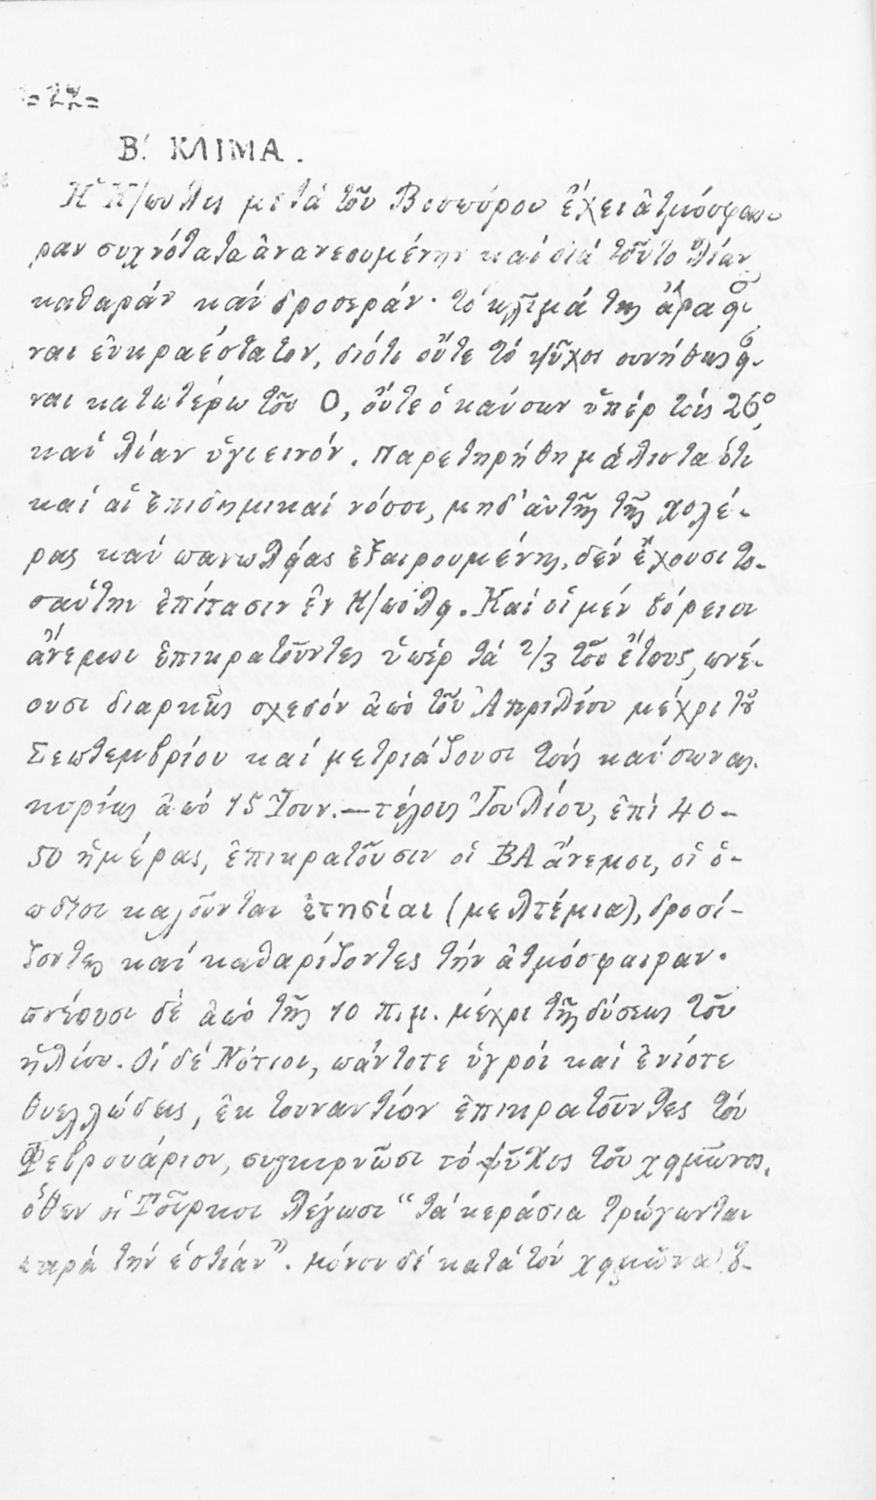 =27=
Β΄. ΚΛΙΜΑ.
Ἡ Κ/πολις μετά τοῦ Βοσπόρου ἔχει ἀτμόσφαι-
ραν συχνότατα ἀνανεουμένην καί διά τοῦτο λίαν
καθαράν καί δροσεράν· τό κλῖμά της ἄρα εἶ-
ναι εὐκραέστατον, διότι οὔτε τό ψῦχος συνήθως εἶ-
ναι κατωτέρω τοῦ 0, οὔτε ὁ καύσων ὑπέρ τούς 26°,
καί λίαν ὑγιεινόν. Παρετηρήθη μάλιστα ὅτι
καί αἱ ἐπιδημικαί νόσοι, μηδ' αὐτῆς τῆς χολέ-
ρας καί πανωλείας ἐξαιρουμένης, δέν ἔχουσι το-
σαύτην ἐπίτασιν ἐν Κ/πόλει. Καί οἱ μέν βόρειοι
ἄνεμοι ἐπικρατοῦντες ὑπέρ τά 2/3 τοῦ ἔτους, πνέ-
ουσι διαρκῶς σχεδόν ἀπό τοῦ Ἀπριλίου μέχρι τοῦ
Σεπτεμβρίου καί μετριάζουσι τούς καύσωνας.
κυρίως ἀπό 15 Ἰουν.—τέλους Ἰουλίου, ἐπί 40-
50 ἡμέρας, ἐπικρατοῦσιν οἱ ΒΑ ἄνεμοι, οἱ ὁ-
ποῖοι καλοῦνται ἐτησίαι (μελτέμια), δροσί-
ζοντες καί καθαρίζοντες τήν ἀτμόσφαιραν·
πνέουσι δέ ἀπό τῆς 10 π.μ. μέχρι τῆς δύσεως τοῦ
ἡλίου. Οἱ δέ Νότιοι, πάντοτε ὑγροί καί ἐνίοτε
θυελλώδεις, ἐκ τοὐναντίον ἐπικρατοῦντες τόν
Φεβρουάριον, συγκιρνῶσι τό ψῦχος τοῦ χειμῶνος,
ὅθεν οἱ Τοῦρκοι λέγωσι "τά κεράσια τρώγωνται
παρά τήν ἑστίαν". Μόνον δέ κατά τόν χειμῶνα